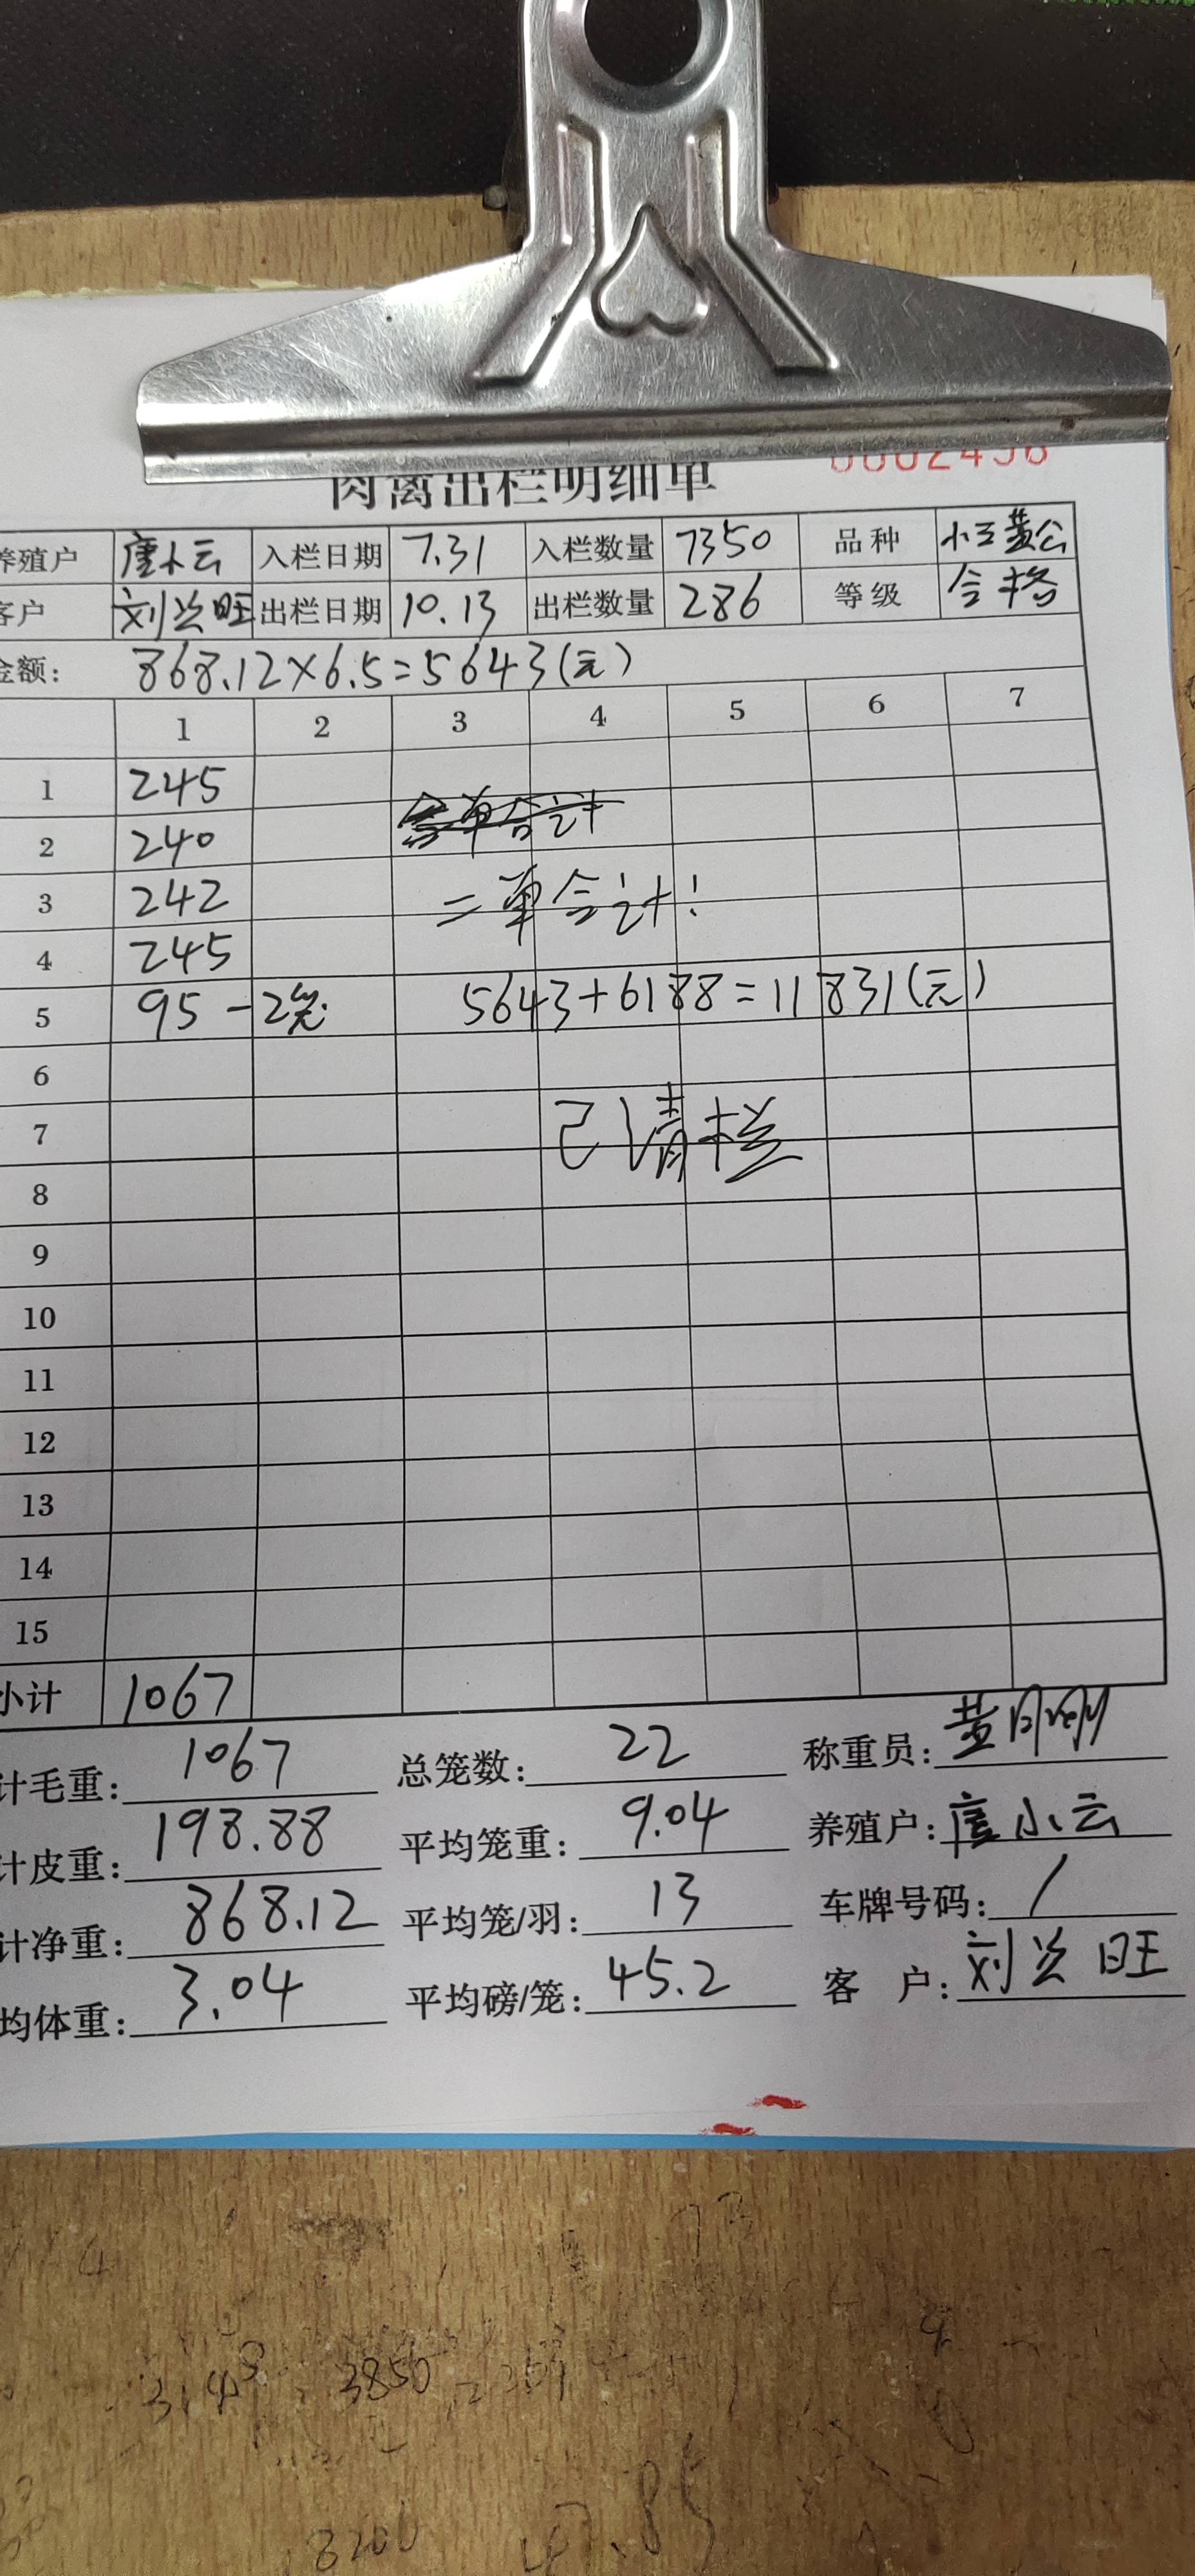 肉禽出栏明细单 0002456
养殖户 唐小云 入栏日期 7.31 入栏数量 7350 品种 小三黄公
客户 刘兴旺 出栏日期 10.13 出栏数量 286 等级 合格
金额: 868.12×6.5=5643(元)
1 2 3 4 5 6 7
1 245
2 240 单合计
3 242 二单合计!
4 245
5 95-2笼 5643+6188=11831(元)
6
7 已请栏
8
9
10
11
12
13
14
15
小计 1067
计毛重: 1067 总笼数: 22 称重员:
计皮重: 198.88 平均笼重: 9.04 养殖户: 唐小云
计净重: 868.12 平均笼/羽: 13 车牌号码: /
均体重: 3.04 平均磅/笼: 45.2 客户: 刘兴旺
3850
8200